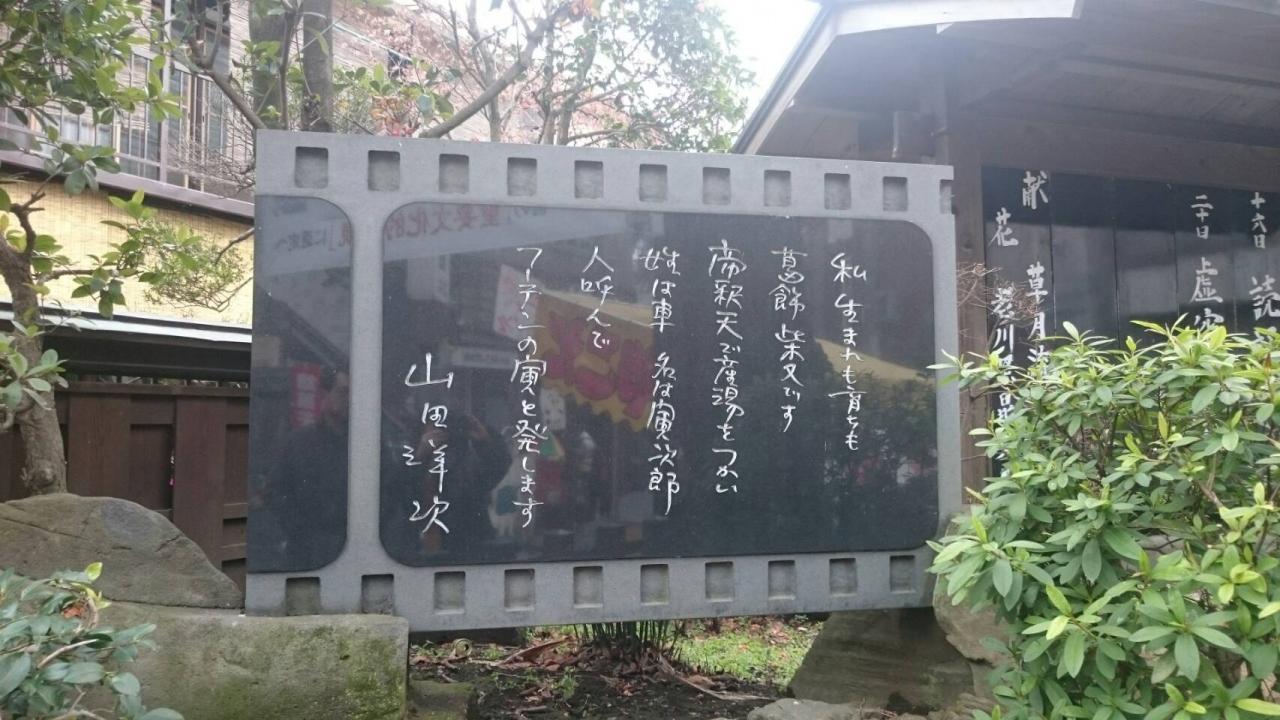 私 生まれも育ちも
葛飾 柴又です
帝釈天で産湯をつかい
姓は車 名は寅次郎
人呼んで
フーテンの寅と発します
山田洋次
十六日
二十日 虚空
献花 草月